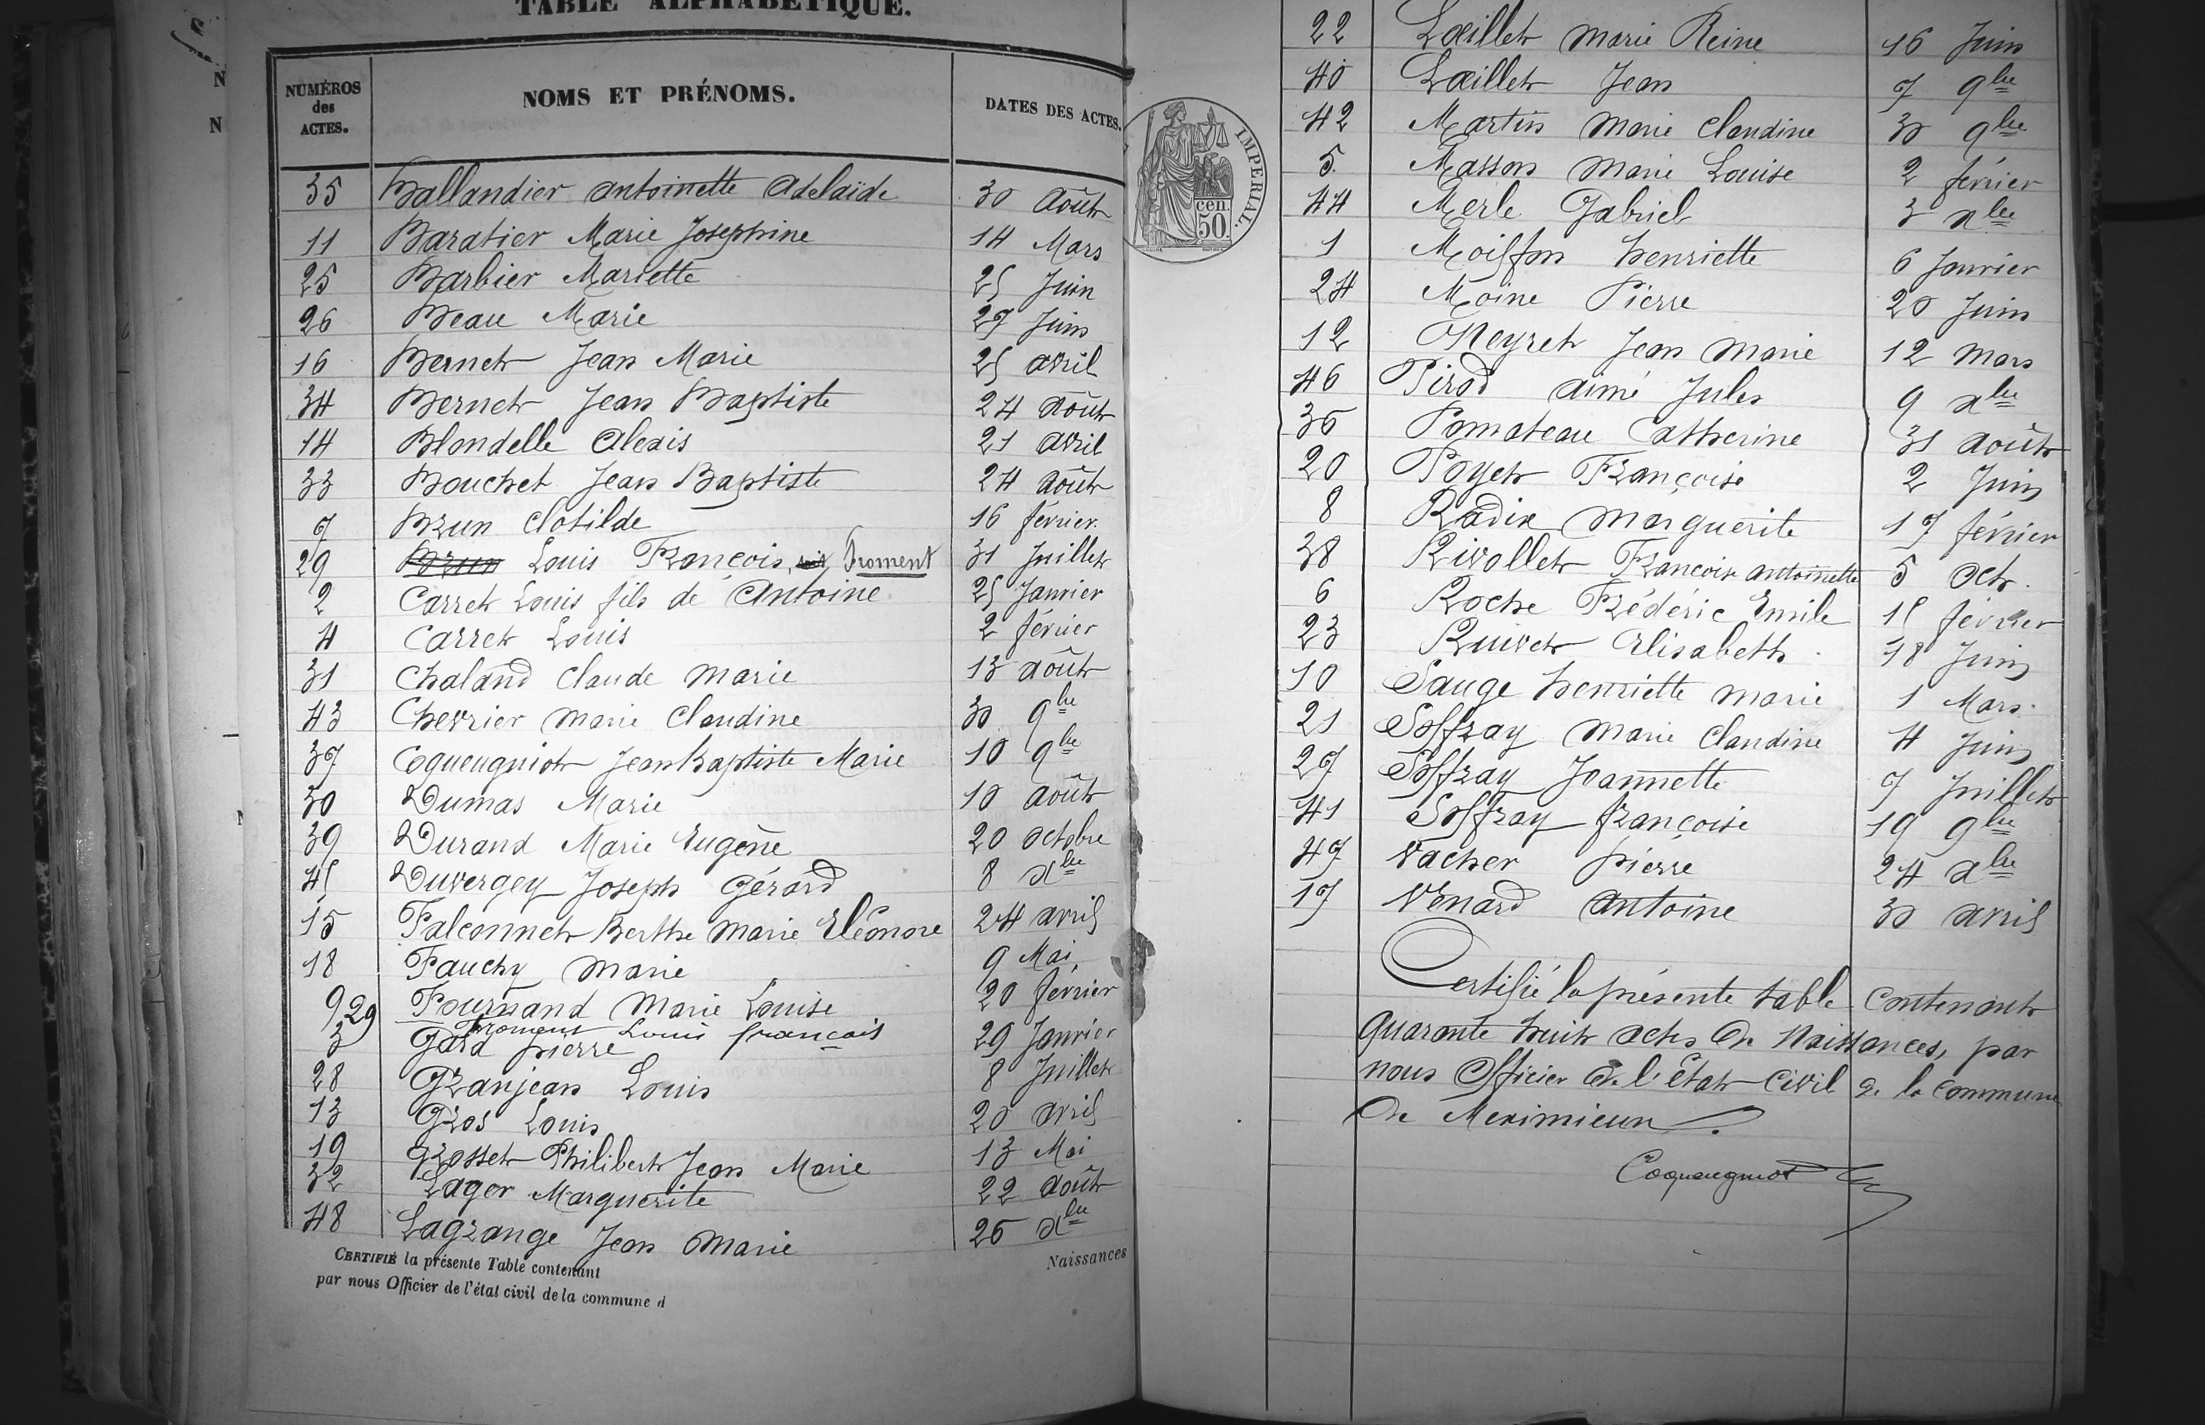 TABLE ALPHABÉTIQUE.
NUMÉROS des ACTES. NOMS ET PRÉNOMS. DATES DES ACTES.
35 Ballandier antoinette adelaïde 30 Août
11 Baratier Marie Josephine 14 Mars
25 Barbier Mariette 25 Juin
26 Beau Marie 27 Juin
16 Bernet Jean Marie 25 avril
34 Bernet Jean Baptiste 24 août
14 Blondelle alexis 21 avril
33 Bouchet Jean Baptiste 24 août
7 Brun Clotilde 16 février
29 Brun Louis François, Froment 31 Juillet
2 Carret Louis fils de Antoine 25 Janvier
4 Carret Louis 2 février
31 Chaland Claude Marie 13 août
43 Chevrier Marie Claudine 30 9bre
37 Coqueugniot Jean Baptiste Marie 10 9bre
30 Dumas Marie 10 août
39 Durand Marie Eugène 20 octobre
45 Duvergey Joseph Gérard 8 Xbre
15 Falconnet Berthe Marie Eléonore 24 avril
18 Fauchy Marie 9 Mai
9 Fournand Marie Louise 20 février
29 Froment Louis françois
3 Gard pierre 29 Janvier
28 Granjean Louis 8 Juillet
13 Gros Louis 20 avril
19 Grosset Philibert Jean Marie 13 Mai
32 Lager Marguerite 22 août
48 Lagrange Jean Marie 26 Xbre
CERTIFIÉ la présente Table contenant
par nous Officier de l'état civil de la commune d
Naissances
IMPERIAL.
50 cen.
22 Lœillet Marie Reine 16 Juin
40 Lœillet Jean 7 9bre
42 Martin Marie Claudine 30 9bre
5 Masson Marie Louise 2 février
44 Merle Gabriel 3 Xbre
1 Moiffon henriette 6 Janvier
24 Moine Pierre 20 Juin
12 Neyret Jean Marie 12 Mars
46 Pirod aimé Jules 9 Xbre
36 Pomateau Catherine 31 août
20 Poyet Françoise 2 Juin
8 Radix Marguerite 17 février
38 Rivollet François antoinette 5 Oct.
6 Roche Frédéric Emile 15 février
23 Ruivet Elisabeth 18 Juin
10 Sauge henriette Marie 1 Mars.
21 Soffray Marie Claudine 4 Juin
27 Soffray Joannette 7 Juillet
41 Soffray françoise 19 9bre
47 Vacher pierre 24 Xbre
17 Venard Antoine 30 avril
Certifié la présente table contenant
quarante huit actes de Naissances, par
nous Officier de l'État Civil de la Commune
de Meximieux.
Coqueugniot